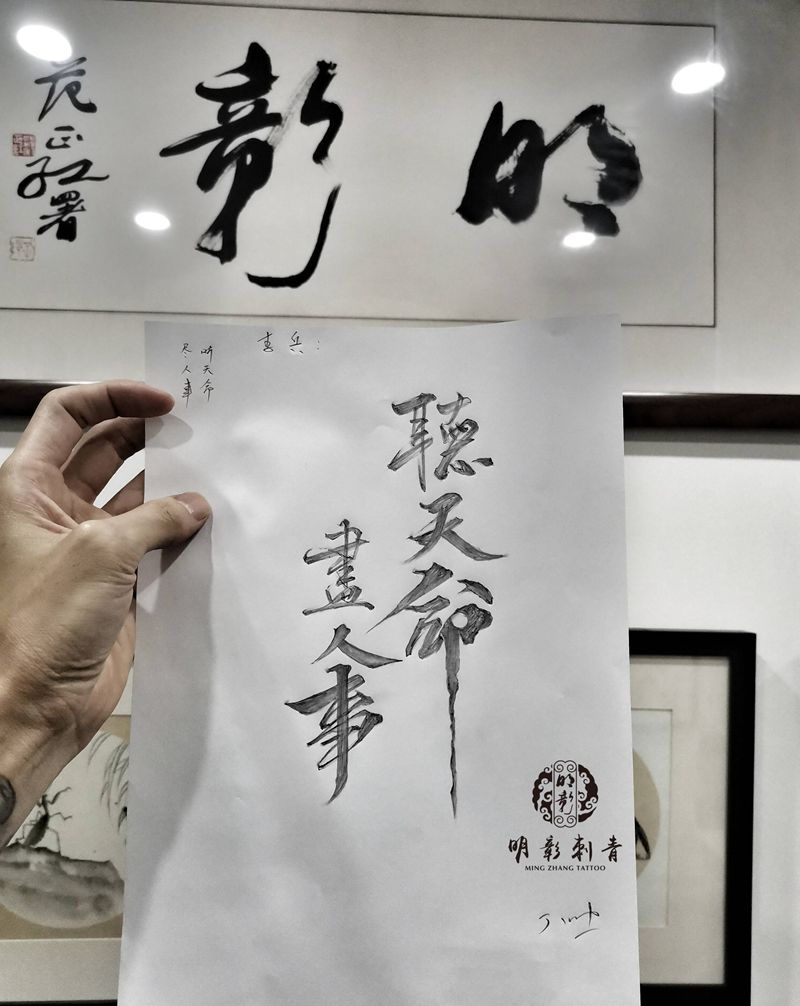 明彰
范正红署
听天命
尽人事
聽天命
盡人事
明彰
明彰刺青
MING ZHANG TATTOO